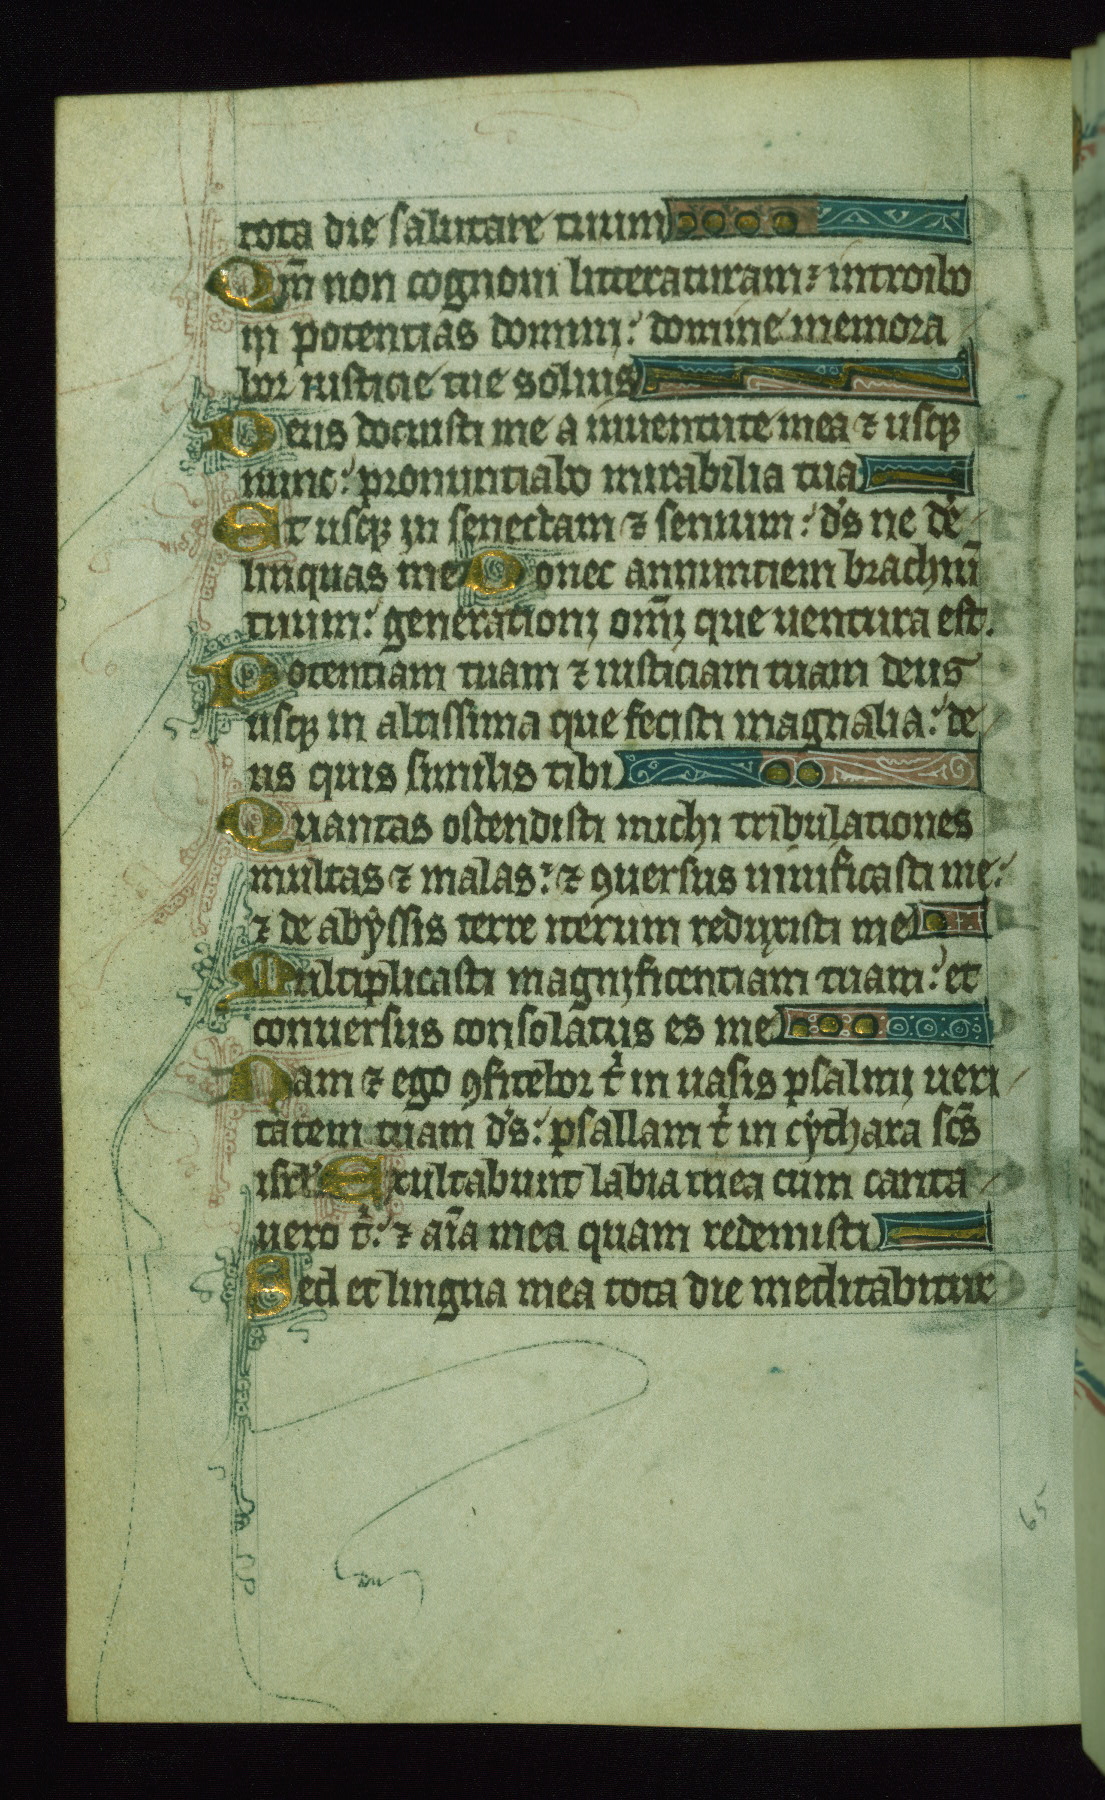 tota die salutare tuum
Qm̄ non cognoui litteraturam: introibo
in potentias domini: domine memora
bor iusticie tue solius
Deus docuisti me a iuuentute mea ⁊ usq̨
nunc: pronuntiabo mirabilia tua
Et usq̨ in senectam ⁊ senium: ds̄ ne de-
linquas me Donec annuntiem brachiū
tuum: generationi om̄i que uentura est.
Potentiam tuam ⁊ iusticiam tuam deus
usq̨ in altissima que fecisti magnalia: de
us quis similis tibi
Quantas ostendisti michi tribulationes
multas ⁊ malas: ⁊ ꝯuersus uiuificasti me:
⁊ de abyssis terre iterum reduxisti me
Multiplicasti magnificentiam tuam: et
conuersus consolatus es me
Nam ⁊ ego ꝯfitebor tⁱ in uasis psalmi ueri
tatem tuam ds̄: psallam tⁱ in cythara scs̄
isrl̄ Exultabunt labia mea cum canta
uero tⁱ: ⁊ aīa mea quam redemisti
Sed et lingua mea tota die meditabitur
65